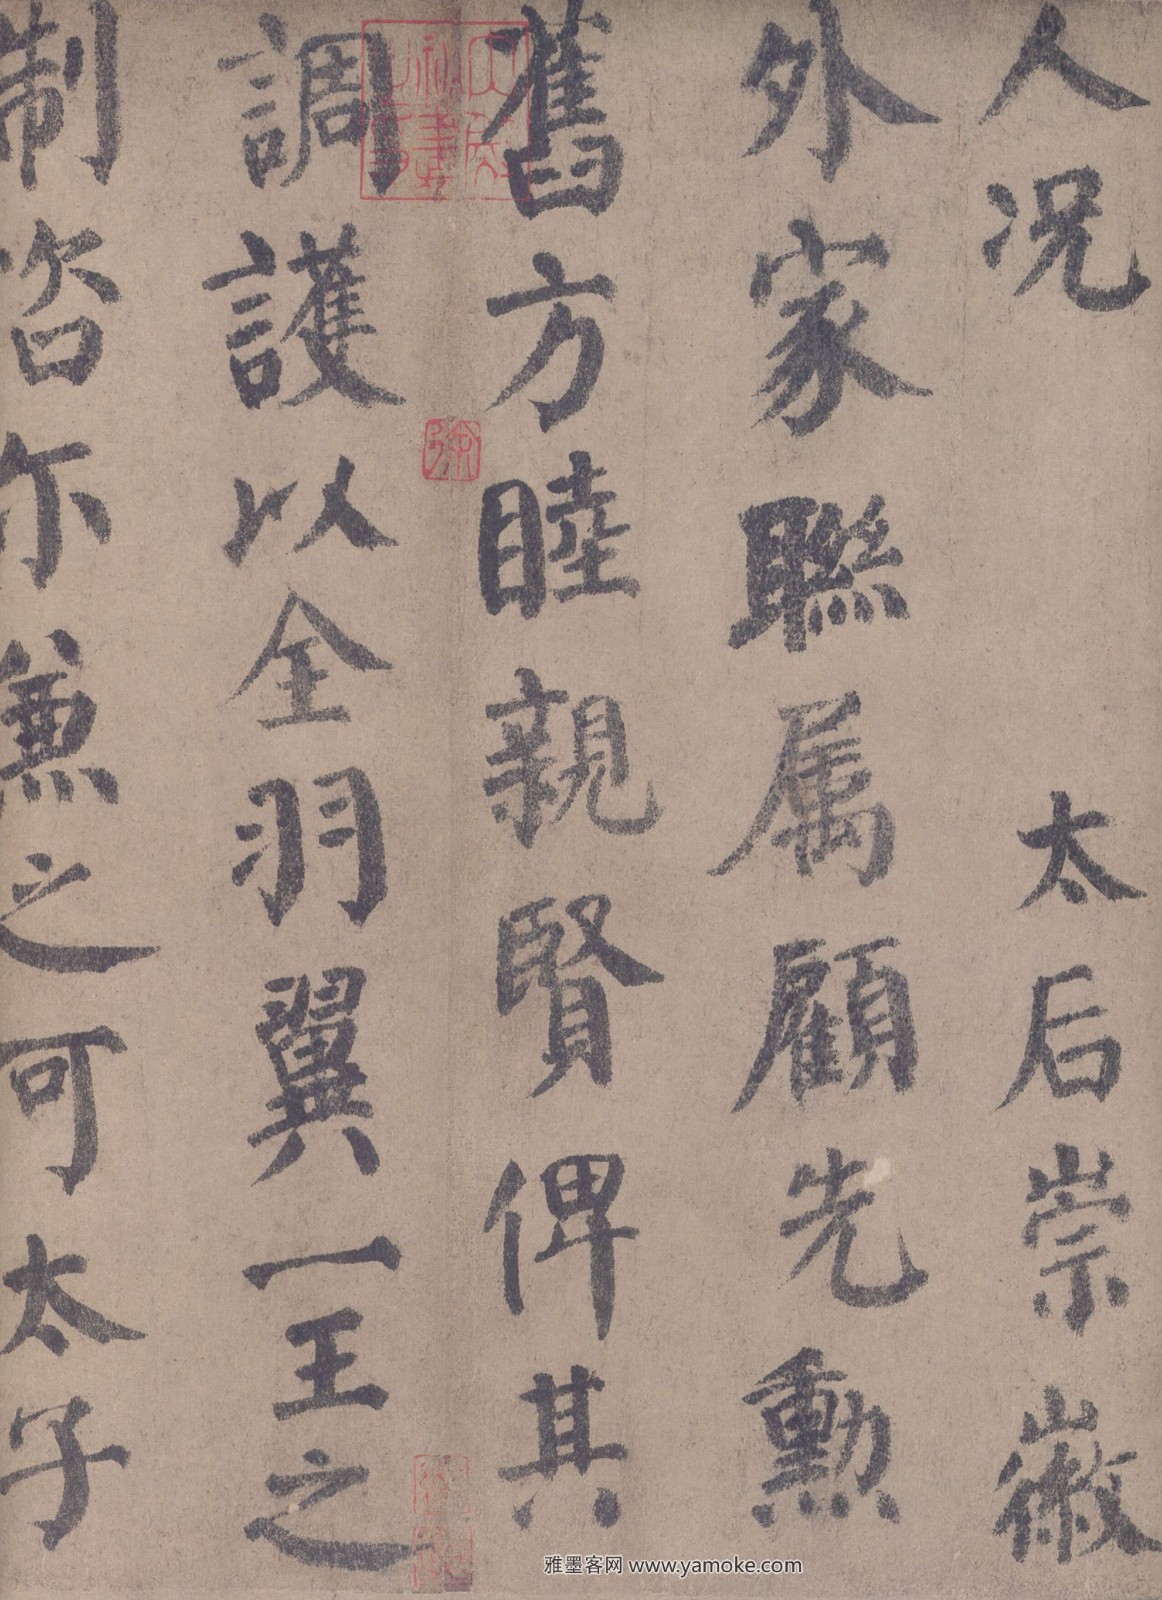 人况 太后崇徽
外家聯属顧先勳
舊方睦親賢俾其
調護以全羽翼一王之
制咨尔兼之可太子
雅墨客网 www.yamoke.com